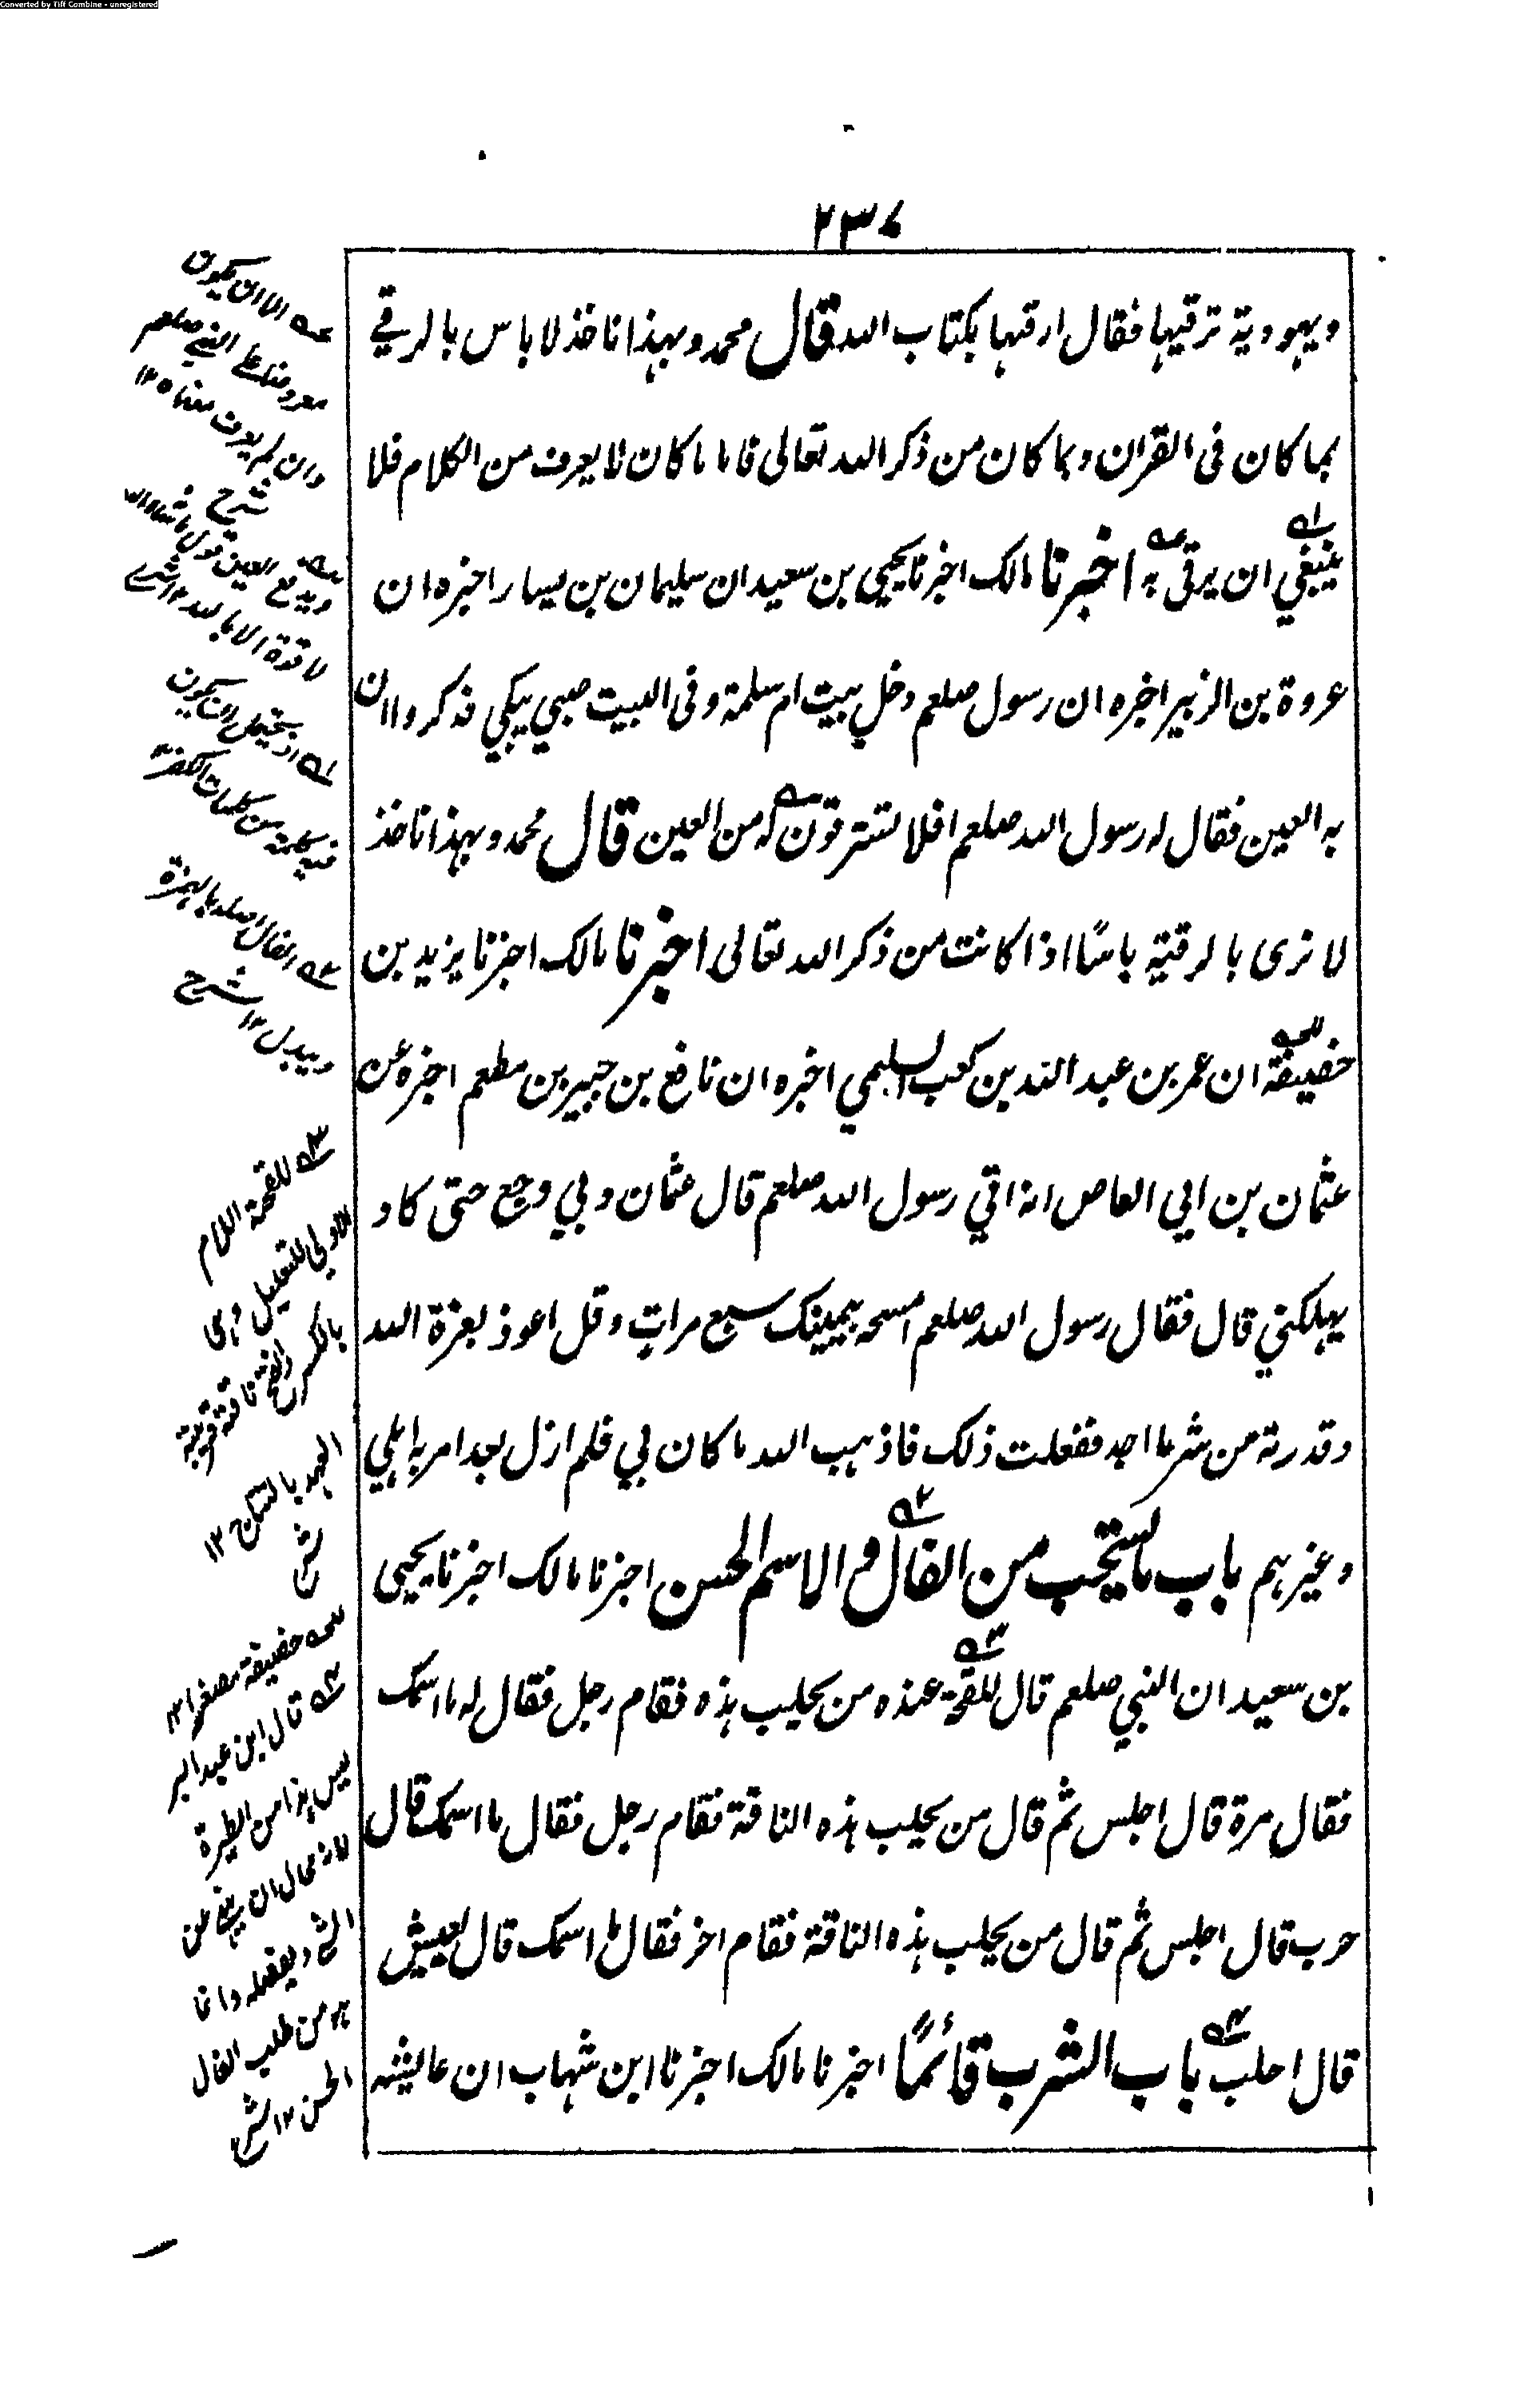 Converted by Tiff Combine - unregistered
٢٣٧
ويهودية ترقيها فقال ارقها بكتاب الله قال محمد وبهذا ناخذ لا باس بالرقي
بما كان فى القران وبما كان من ذكر الله تعالى فاما ما كان لا يعرف من الكلام فلا
ينبغي ان يرقى به اخبرنا مالك اخبرنا يحيى بن سعيد ان سليمان بن يسار اخبره ان
عروة بن الزبير اخبره ان رسول صلعم دخل بيت ام سلمة وفى البيت صبي يبكي فذكروا ان
به العين فقال له رسول الله صلعم افلا تسترقون له من العين قال محمد وبهذا ناخذ
لا نرى بالرقية باسًا اذا كانت من ذكر الله تعالى اخبرنا مالك اخبرنا يزيد بن
خصيفة ان عمر بن عبد الله بن كعب السلمي اخبره ان نافع بن جبير بن مطعم اخبره عن
عثمان بن ابي العاص انه اتي رسول الله صلعم قال عثمان وبي وجع حتى كاد
يهلكني قال فقال رسول الله صلعم امسحه بيمينك سبع مرات وقل اعوذ بعزة الله
وقدرته من شر ما اجد ففعلت ذلك فاذهب الله ما كان بي فلم ازل بعد امر به اهلي
وغيرهم باب ما يستحب من الفال والاسم الحسن اخبرنا مالك اخبرنا يحيى
بن سعيد ان النبي صلعم قال للقحة عنده من يحلب هذه فقام رجل فقال له ما اسمك
فقال مرة قال اجلس ثم قال من يحلب هذه الناقة فقام رجل فقال ما اسمك قال
حرب قال اجلس ثم قال من يحلب هذه الناقة فقام اخر فقال ما اسمك قال يعيش
قال احلب باب الشرب قائمًا اخبرنا مالك اخبرنا ابن شهاب ان عايشه
الا ان يكون
معروضا على النبي صلعم
وان لم يعرف معناه ١٢
شرح
ويدفع العين قول ما شاء الله
لا قوة الا بالله ١٢ شرح
اذ يحتمل ان يكون
فيه كلمة من كلمات الكفرة
الفال اصله بالهمزة
ويبدل ١٢ شرح
للقحة اللام
الاولى للتعليل وهى
بالكسر والفتح ناقة قريبة
العهد بالنتاج ١٢
شرح
خصيفة مصغرا ١٢
قال ابن عبد البر
ليس هذا من الطيرة
لانه محال ان ينهى عن
الشئ ويفعله وانما
هو من طلب الفال
الحسن ١٢ شرح